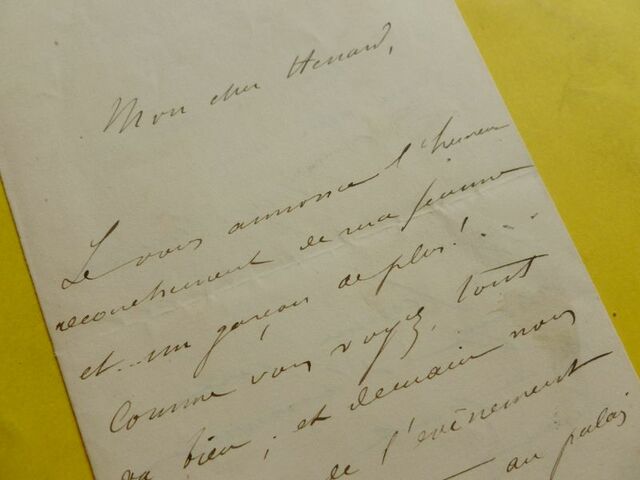 Mon cher Henard,
Je vous annonce l'heureux
accouchement de ma femme
et... un garçon de plus!...
Comme vous voyez, tout
va bien; et demain nous
de l'evènement
au palais